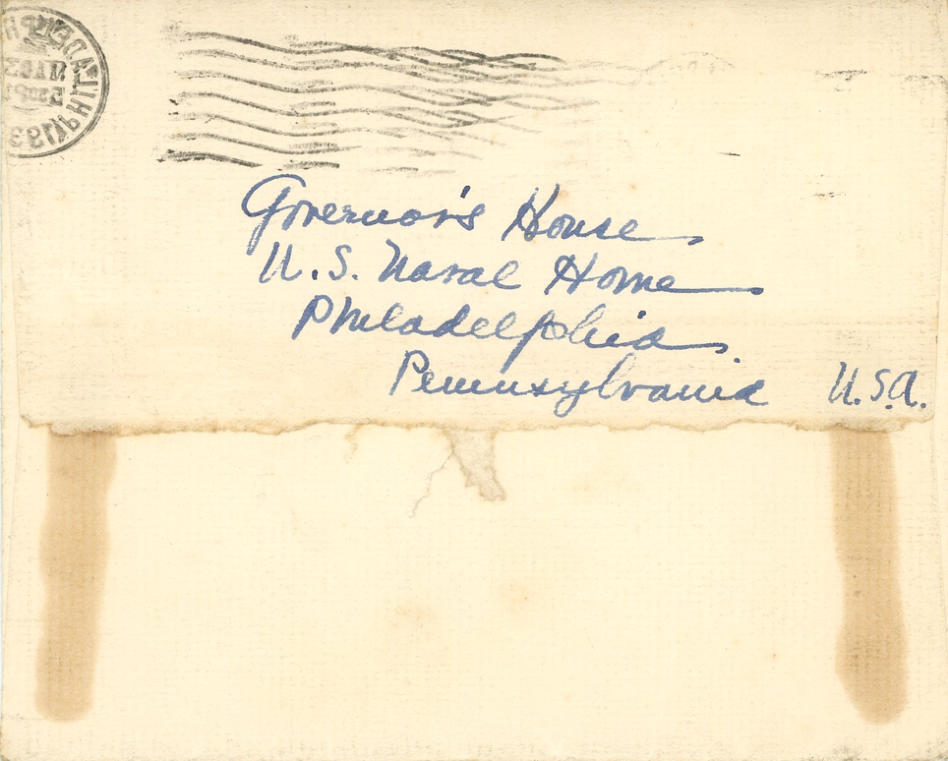 Governor's House
U.S. Naval Home
Philadelphia
Pennsylvania U.S.A.